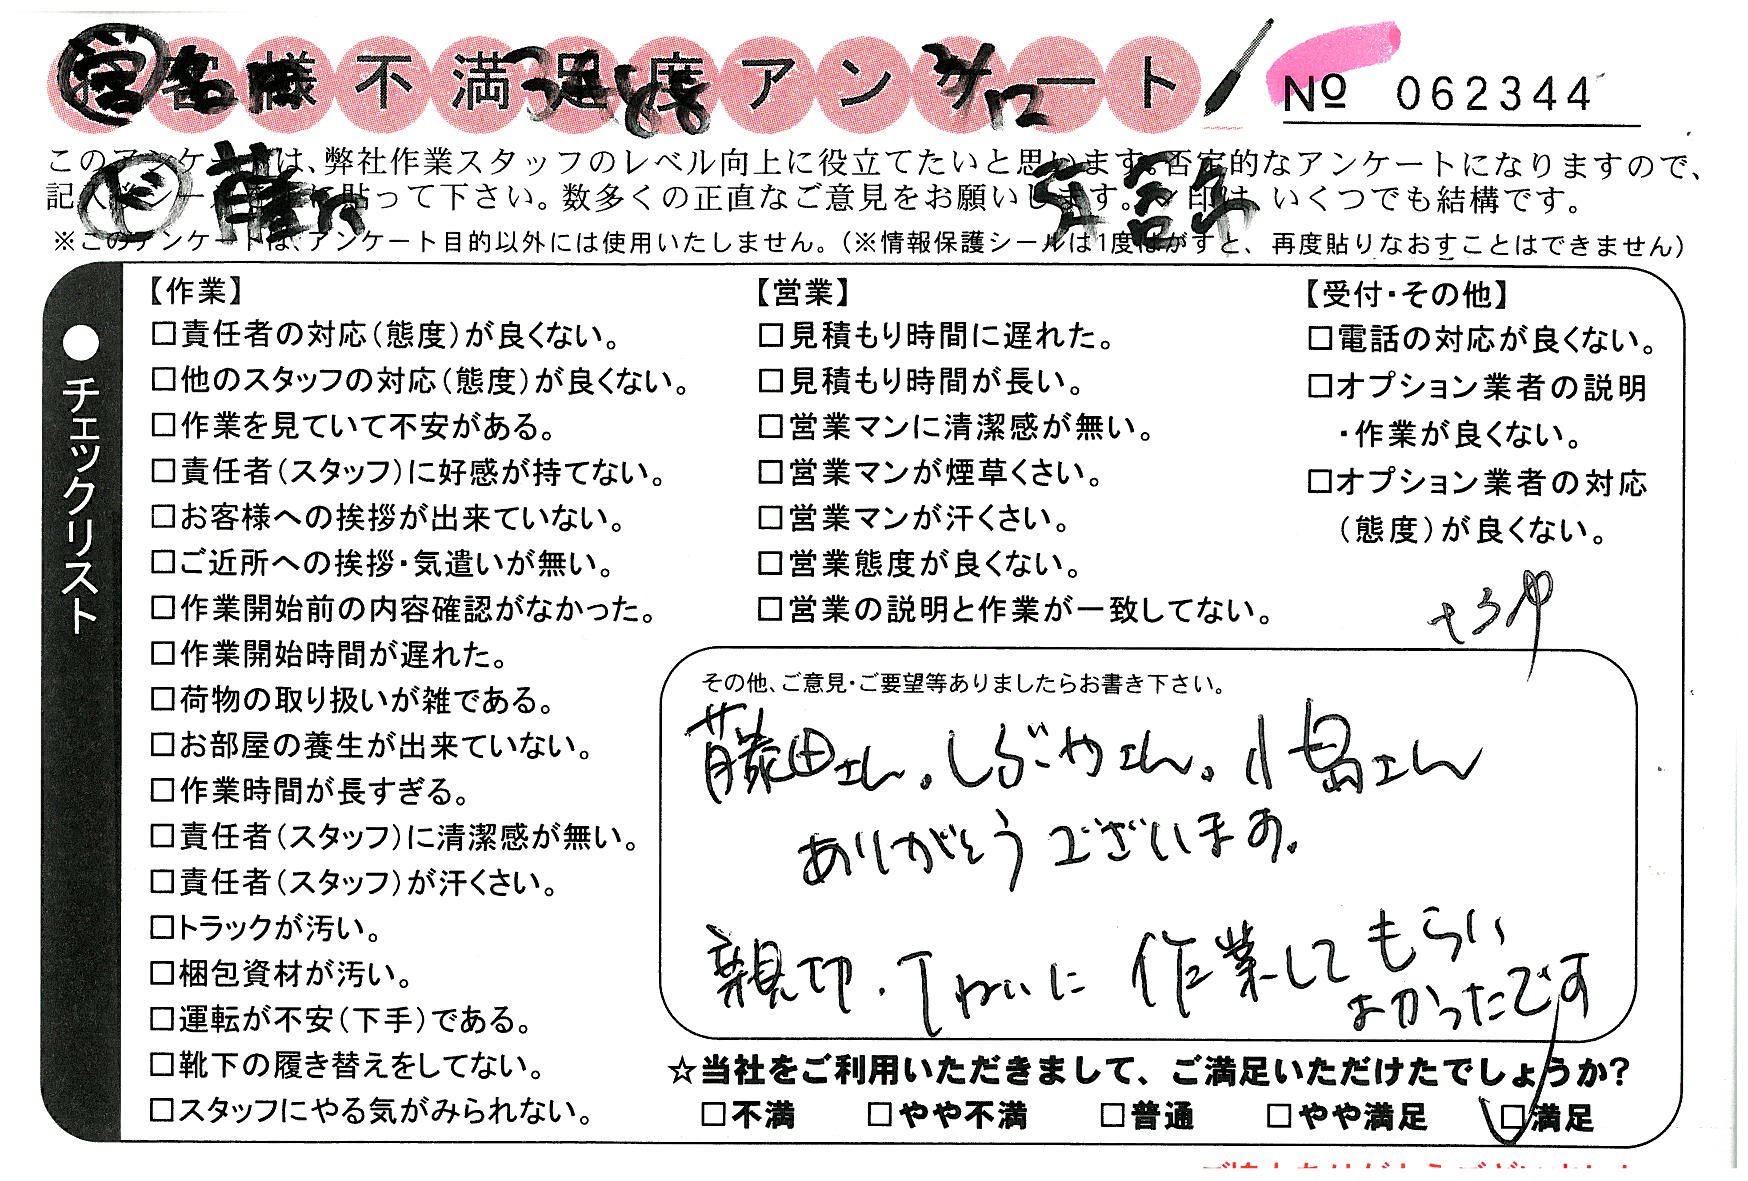 お客様不満足度アンケート
No 062344
このアンケートは、弊社作業スタッフのレベル向上に役立てたいと思います。否定的なアンケートになりますので、
記入後シールを上に貼って下さい。数多くの正直なご意見をお願いします。レ印は、いくつでも結構です。
※このアンケートは、アンケート目的以外には使用いたしません。(※情報保護シールは1度はがすと、再度貼りなおすことはできません)
●チェックリスト
【作業】
□責任者の対応(態度)が良くない。
□他のスタッフの対応(態度)が良くない。
□作業を見ていて不安がある。
□責任者(スタッフ)に好感が持てない。
□お客様への挨拶が出来ていない。
□ご近所への挨拶・気遣いが無い。
□作業開始前の内容確認がなかった。
□作業開始時間が遅れた。
□荷物の取り扱いが雑である。
□お部屋の養生が出来ていない。
□作業時間が長すぎる。
□責任者(スタッフ)に清潔感が無い。
□責任者(スタッフ)が汗くさい。
□トラックが汚い。
□梱包資材が汚い。
□運転が不安(下手)である。
□靴下の履き替えをしてない。
□スタッフにやる気がみられない。
【営業】
□見積もり時間に遅れた。
□見積もり時間が長い。
□営業マンに清潔感が無い。
□営業マンが煙草くさい。
□営業マンが汗くさい。
□営業態度が良くない。
□営業の説明と作業が一致してない。
【受付・その他】
□電話の対応が良くない。
□オプション業者の説明
・作業が良くない。
□オプション業者の対応
(態度)が良くない。
その他、ご意見・ご要望等ありましたらお書き下さい。
藤田さん。しぶやさん。小島さん
ありがとうございます。
親切・ていねいに作業してもらい
よかったです
☆当社をご利用いただきまして、ご満足いただけたでしょうか?
□不満 □やや不満 □普通 □やや満足 □満足